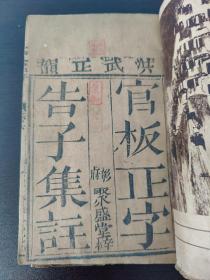 洪武正韻
官板正字
彰府聚盛堂梓
告子集註